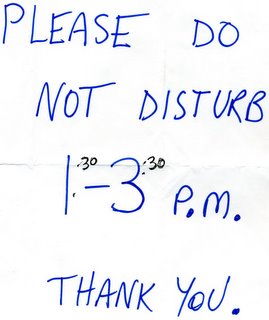 PLEASE DO
NOT DISTURB
1:30-3:30 P.M.
THANK YOU.